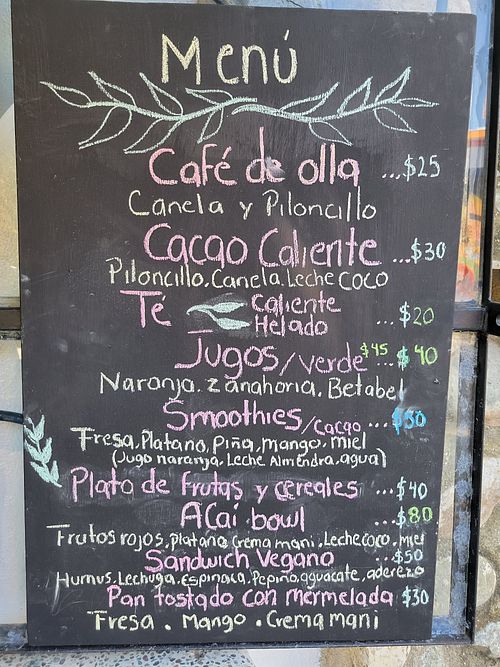 Menú
Café de olla ...$25
Canela y Piloncillo
Cacao Caliente ...$30
Piloncillo, Canela, Leche coco
Té Caliente
Helado ...$20
Jugos/verde $45 ...$40
Naranja, zanahoria, Betabel
Smoothies/cacao ...
Fresa, Platano, Piña, mango, miel
(Jugo naranja, Leche Almendra, agua)
Plato de frutas y cereales ...$40
ACai bowl ...$80
Frutos rojos, Platano, Crema mani, Leche coco, miel
Sandwich Vegano ...$50
Humus, Lechuga, Espinaca, Pepino, aguacate, aderezo
Pan tostado con mermelada $30
Fresa. Mango. Crema mani